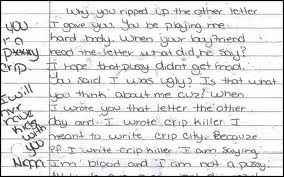 Why you ripped up the other letter
I gave you. You be playing me
hard body. When your boyfriend
read the letter what did he say?
I hope that pussy didn't get mad.
You said I was ugly? Is that what
you think about me cuz? When
I wrote you that letter the other
day and I wrote crip killer I
meant to write crip city. Because
if I write crip killer I am saying
I'm blood and I am not a pussy.
you
r a
pussy
crip.
I will
nvr
have
kids
with
you